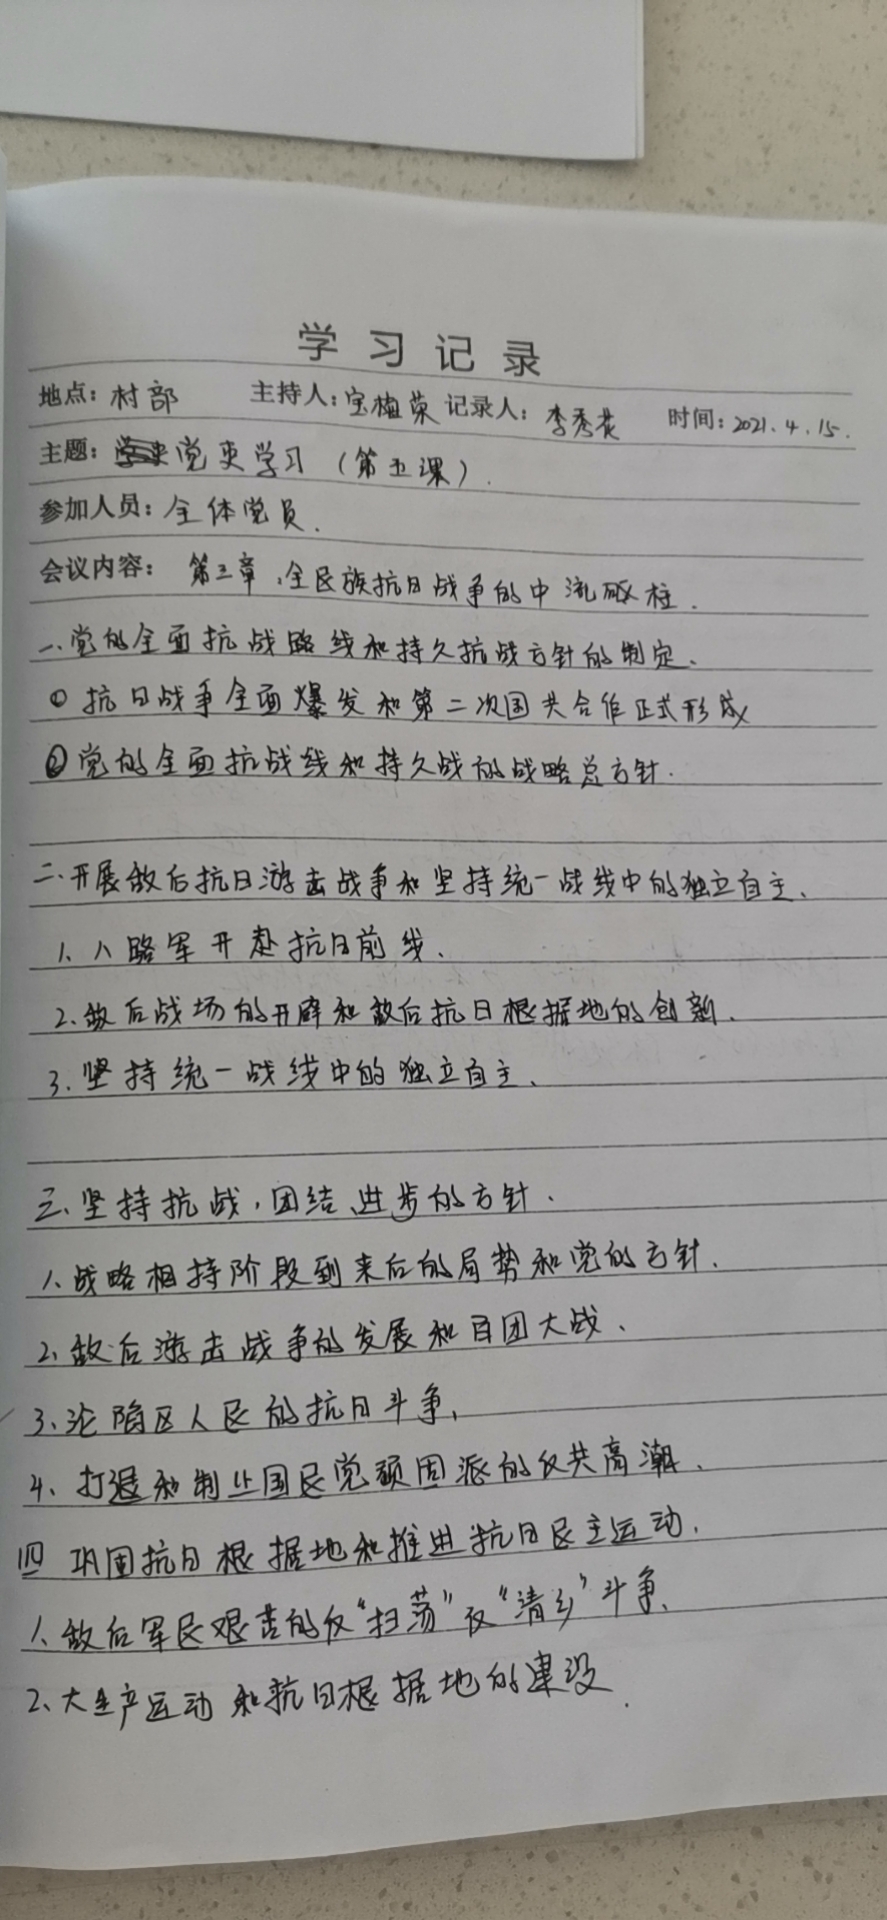 学习记录
地点：村部 主持人：宝梅荣 记录人：李秀花 时间：2021.4.15.
主题：党史学习（第五课）.
参加人员：全体党员.
会议内容：第三章、全民族抗日战争的中流砥柱.
一、党的全面抗战路线和持久抗战方针的制定.
① 抗日战争全面爆发和第二次国共合作正式形成
② 党的全面抗战线和持久战的战略总方针.
二、开展敌后抗日游击战争和坚持统一战线中的独立自主、
1、八路军开赴抗日前线、
2、敌后战场的开辟和敌后抗日根据地的创新、
3、坚持统一战线中的独立自主、
三、坚持抗战，团结、进步的方针.
1、战略相持阶段到来后的局势和党的方针.
2、敌后游击战争的发展和百团大战、
3、沦陷区人民的抗日斗争、
4、打退和制止国民党顽固派的反共高潮、
四 巩固抗日根据地和推进抗日民主运动.
1、敌后军民艰苦的反“扫荡”反“清乡”斗争、
2、大生产运动和抗日根据地的建设.